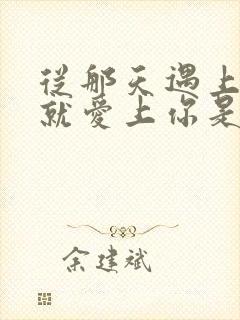 從那天遇上
就愛上你是
余建斌